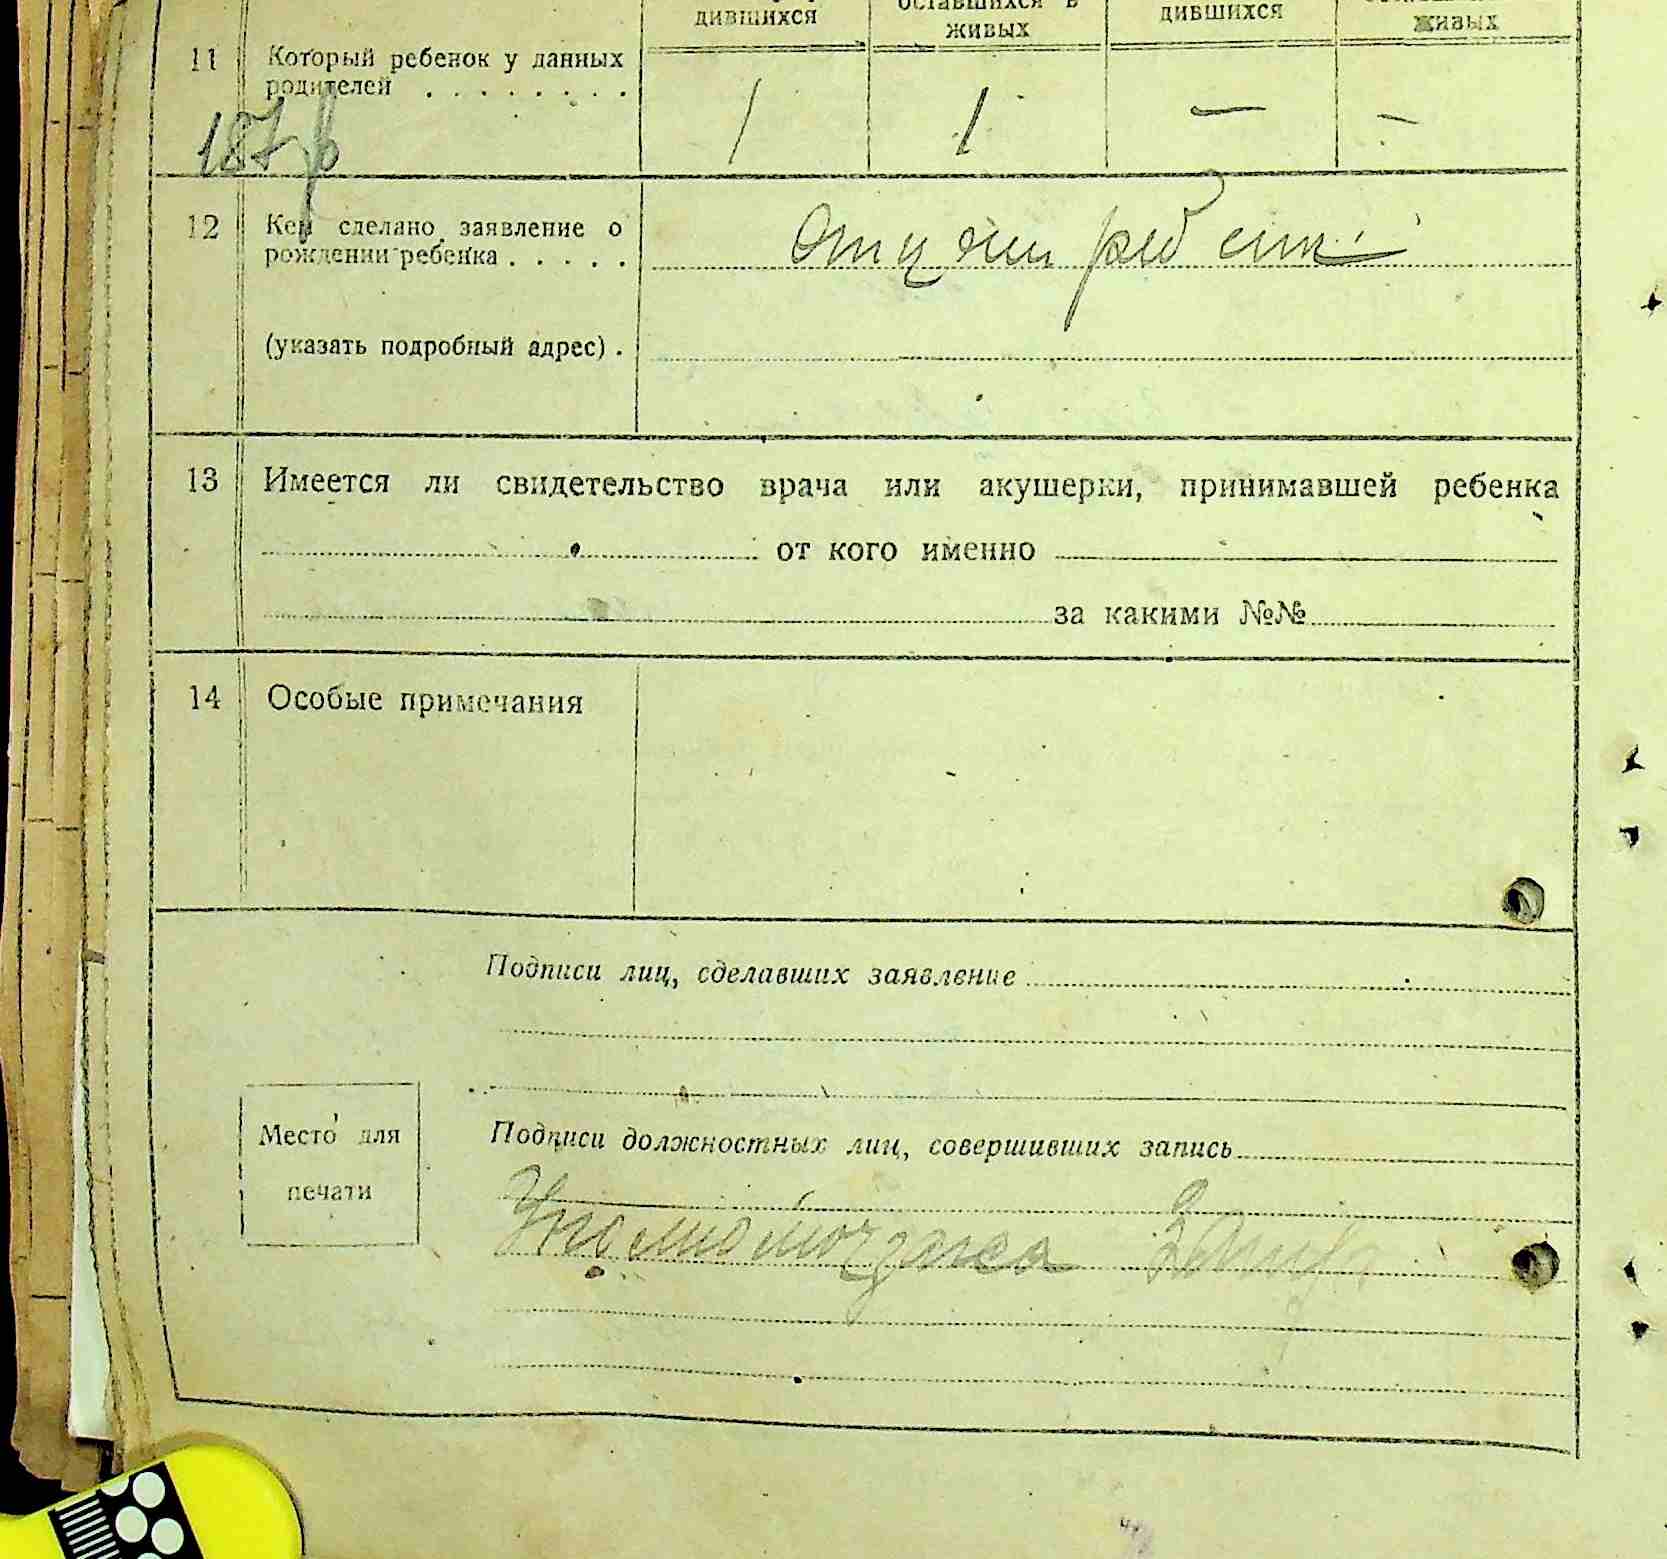 дившихся оставшихся в живых дившихся живых
11 Который ребенок у данных
родителей . . . . . . . .
1 1 — —
187р
12 Кем сделано заявление о
рождении ребенка . . . . .
(указать подробный адрес) .
13 Имеется ли свидетельство врача или акушерки, принимавшей ребенка
от кого именно
за какими №№
14 Особые примечания
Подписи лиц, сделавших заявление
Место для
печати
Подписи должностных лиц, совершивших запись